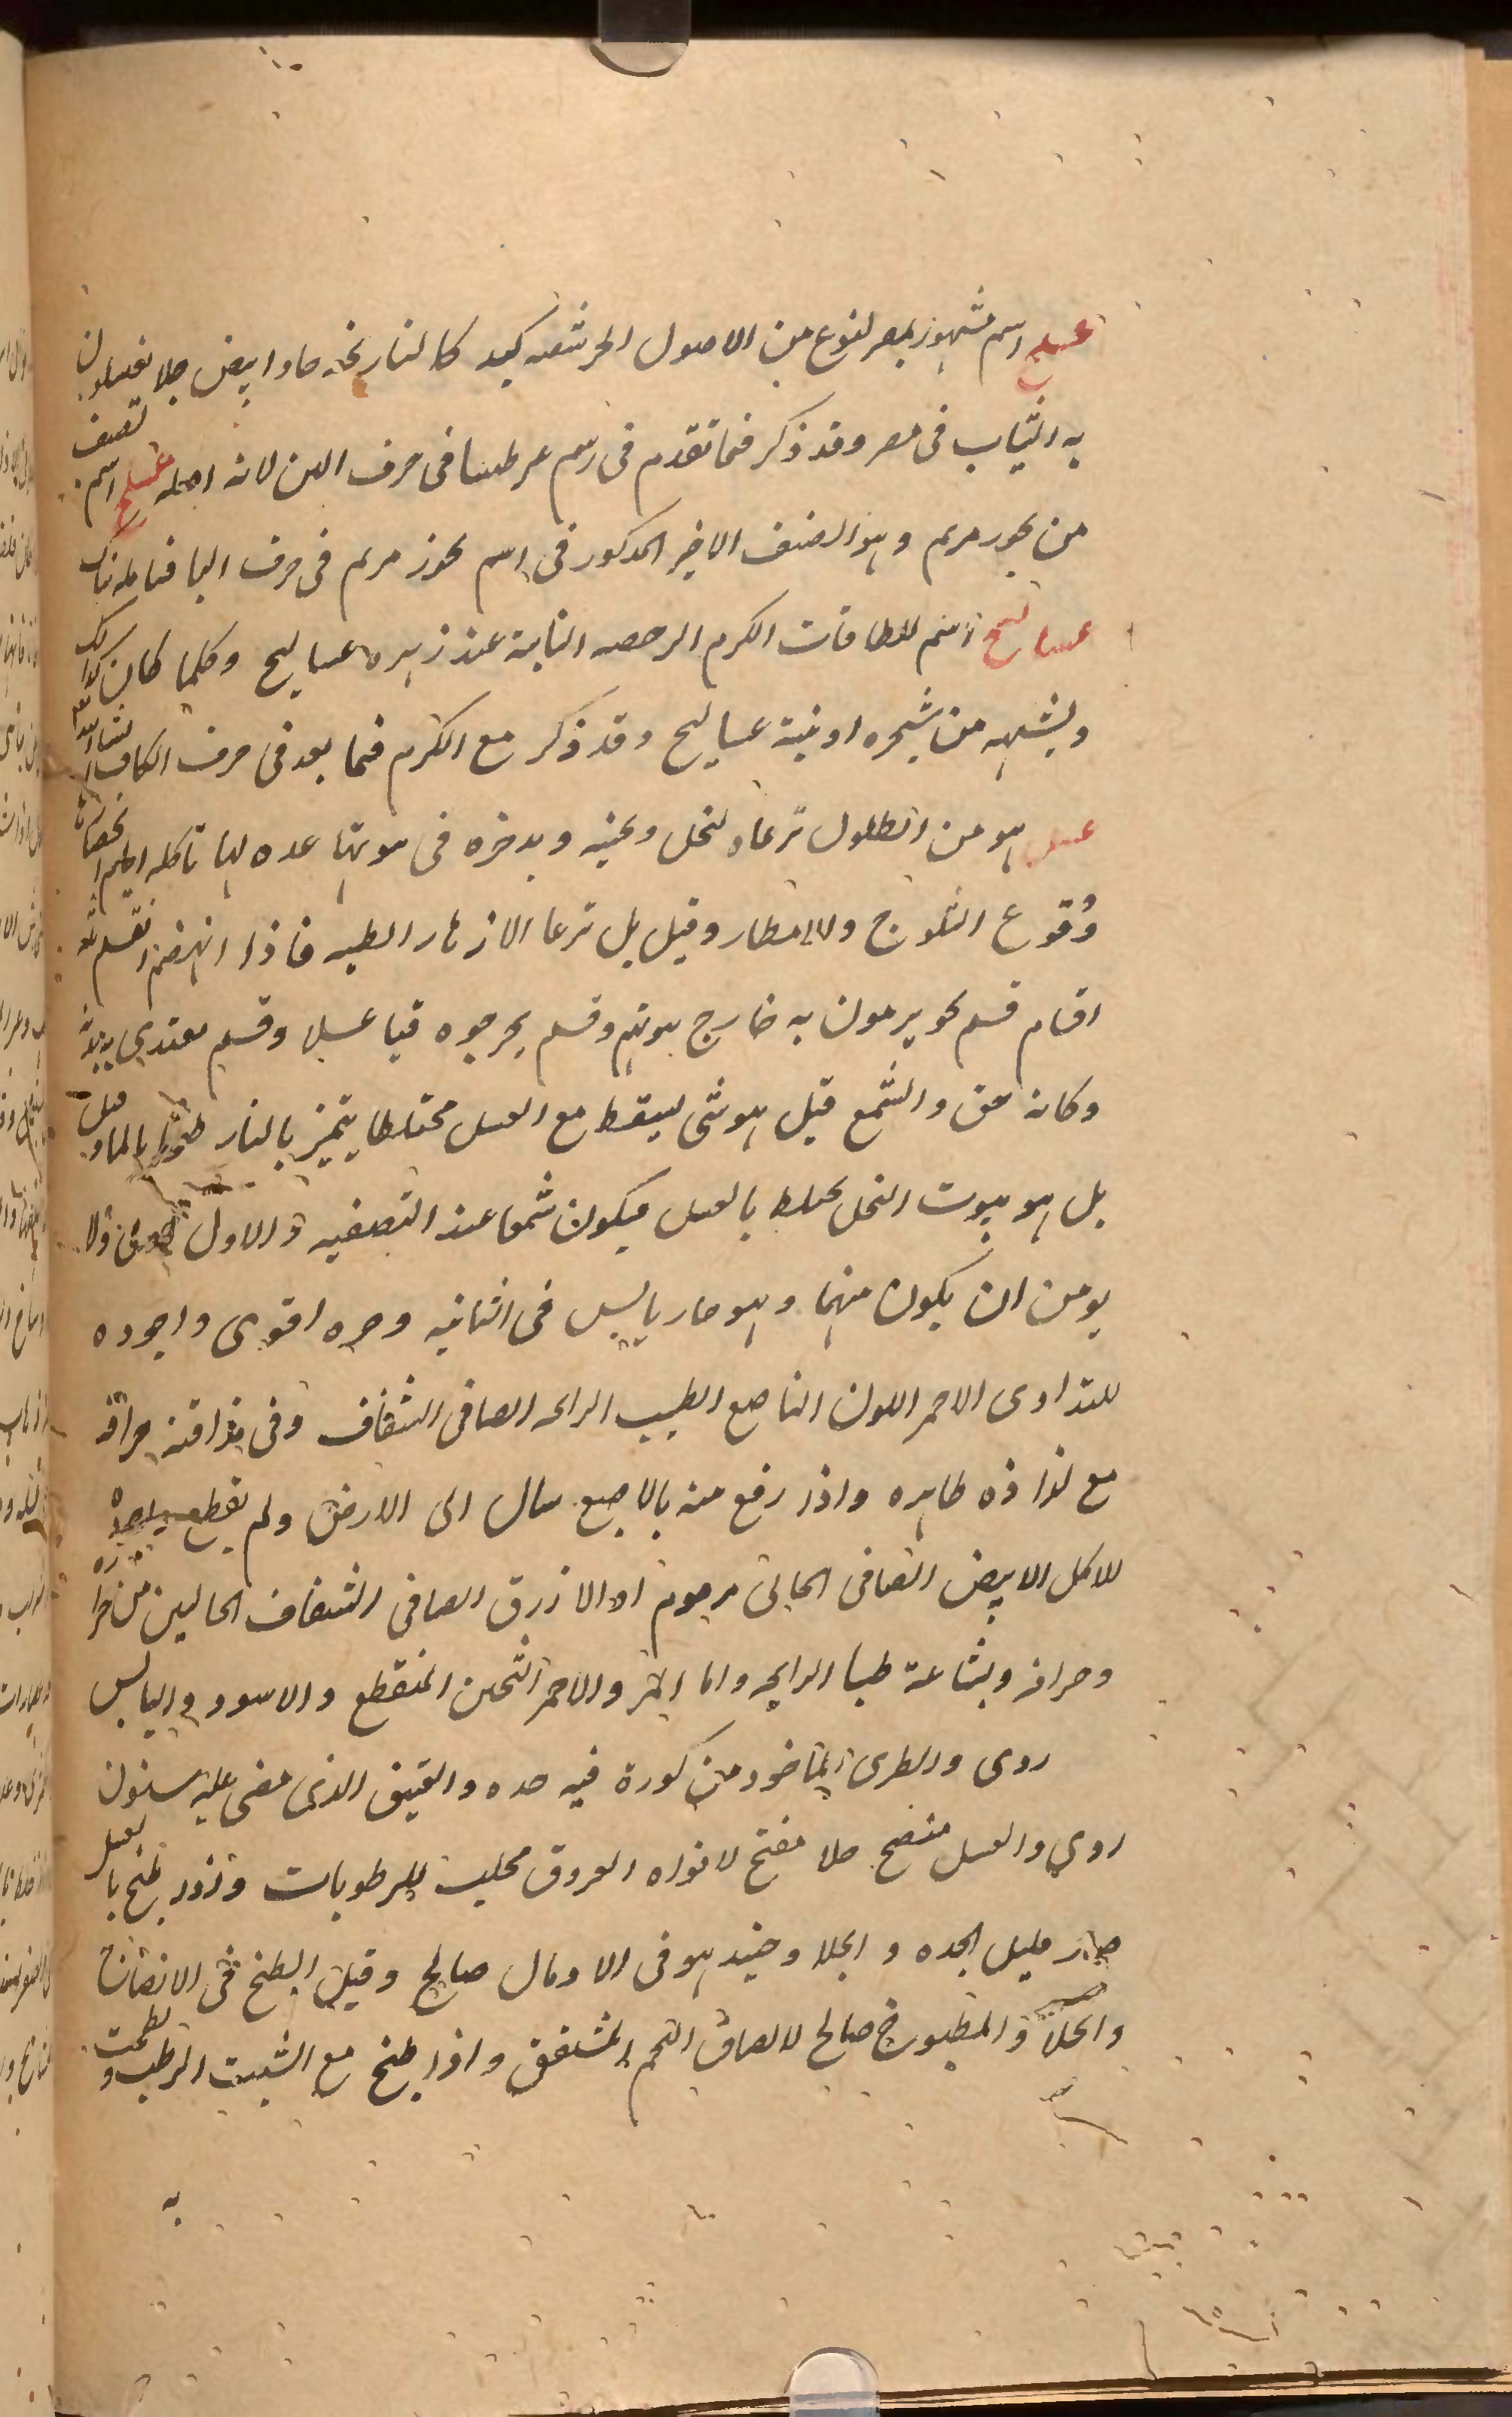 عسلج اسم مشهور بمصر لنوع من الاصول الحرشفه كبد كالنارنجه حاد ابيض جلا يغسلون
به الثياب فى مصر وقد ذكر فما تقدم فى رسم عرطنيا فى حرف العين لانه اصله عسلج اسم لصنف
من بخور مريم وهو الصنف الاخير المذكور فى اسم بخور مريم فى حرف البا فتامله هناك
عساليج اسم لطاقات الكرم الرخصه النابتة عند زهره عساليج وكلما كان كذلك
ويشبهه من شجره او نبتة عساليج وقد ذكر مع الكرم فما بعد فى حرف الكاف ان شاء الله
عسل هو من الطلول ترعاه النحل وتجنيه وتدخره فى بيوتها عده لها تاكله ايام
وُقوع الثلوج والامطار وقيل بل ترعا الازهار الطيبه فاذا انهضم انقسم ثلثه
اقسام قسم نحو يرمون به خارج بيوتهم وقسم يخرجوه قيا عسلا وقسم يغتدى به بدنه
وكانه حق والشمع قيل هو شى يسقط مع العسل مختلطا يتميز بالنار بالماء وقيل
بل هو بيوت النحل يختلط بالعسل فيكون شمعا عند التصفيه والاول ولا
يومن ان يكون منهما وهو حار يابس فى الثانيه وحره اقوى واجوده
للتداوى الاحمر اللون الناصع الطيب الرائحه الصافى الشفاف وفى مذاقته حرافة
مع لذاذه ظاهره واذا رفع منه بالاصبع سال الى الارض ولم يقطع
للاكل الابيض الصافى او الازرق الصافى الشفاف الحاليين من حراره
وحرافه وبشاعة طيبا الرايحه واما المر والاحمر الثخين المنقطع والاسود واليابس
ردى والطرى الماخوذ من كورة فيه حده والعتيق الذى مضى عليه سنون
ردى والعسل منضج جلا مفتح لافواه العروق محلب للرطوبات واذا طبخ بالعسل
صار قليل الحده والجلا وحينئذ هو فى الادمال صالح وقيل الطبخ فى الانضاج
والجلآ والمطبوخ صالح لالصاق اللحم المشقق واذا طبخ مع الشبت الرطب ولطخت
به